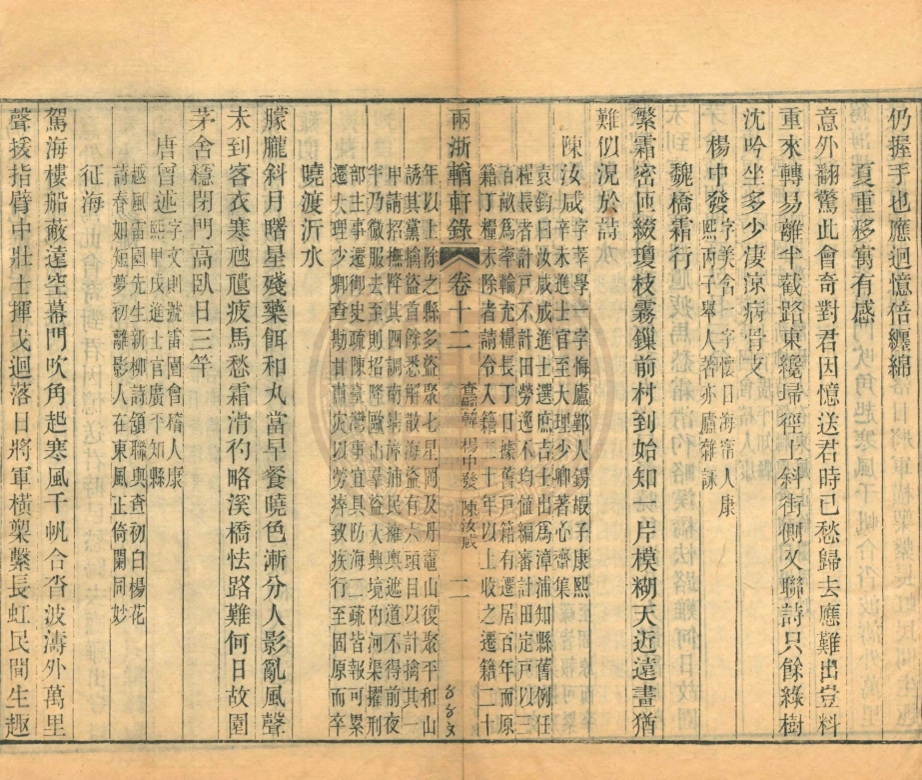 仍握手也應迴憶倍纏綿
夏重移寓有感
意外翻驚此會奇對君因憶送君時已愁歸去應難出豈料
重來轉易離半截路東纔歸徑上斜街側又聯詩只餘綠樹
沈吟坐多少淒涼病骨支
楊中發
字美含一字懷日海甯人康
熙丙子舉人著亦廬雜詠
魏橋霜行
繁霜密匝綴瓊枝霧鏁前村到始知一片模糊天近遠畫猶
難似況於詩
陳汝咸
字莘學一字悔廬鄞人錫嘏子康熙
辛未進士官至大理少卿著心齋集
袁鈞曰汝咸成進士選庶吉士出為漳浦知縣舊例任
糧長者計戶不計田勞逸不均值編審計田定戶以三
百畝為率輪充糧長丁口據舊戶籍有遷居百年而原
籍丁糧未除者請令入籍二十年以上收之遷籍二十
兩浙輶軒錄
卷十二
查 楊中發 陳汝咸
二
年以上除之縣多盜聚七星洞及丹竈山復聚平和山
誘其黨擒盜首餘悉解散海盜有六頭目以計擒其一
申請招撫降其四調南靖漳浦民擁輿遮道不得前夜
半乃微服去至則招降歐山羣盜大興境內河渠擢刑
部主事遷御史疏陳臺灣事宜具防海二疏皆報可累
遷大理少卿查勘甘肅災以勞瘁致疾行至固原而卒
曉渡沂水
朦朧斜月曙星殘藥餌和丸當早餐曉色漸分人影亂風聲
未到客衣寒虺隤疲馬愁霜滑彴略溪橋怯路難何日故園
茅舍穩閉門高臥日三竿
唐曾述
字文則號雷園會稽人康
熙甲戌進士官廣平知縣
越風雷園先生新柳詩頷聯與查初白楊花
詩春如短夢初離影人在東風正倚闌同妙
征海
駕海樓船敵遠空幕門吹角起寒風千帆合沓波濤外萬里
聲援指臂中壯士揮戈迴落日將軍橫槊繫長虹民間生趣